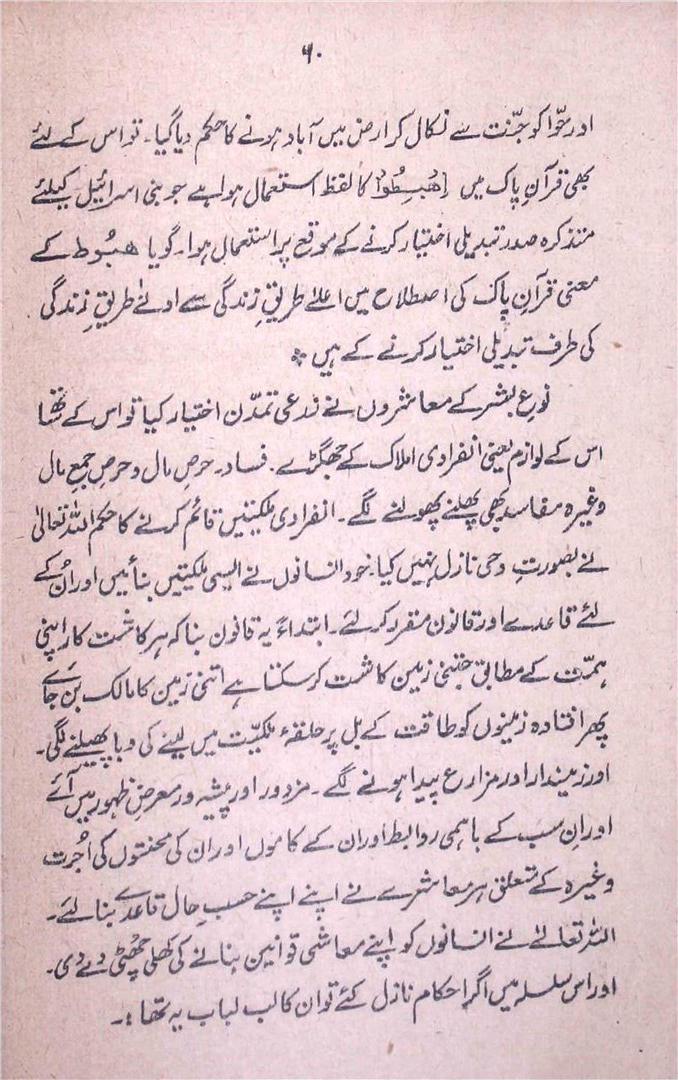 ۶۰
اور حوّا کو جنّت سے نکال کر ارض میں آباد ہونے کا حکم دیا گیا۔ تو اس کے لئے
بھی قرآنِ پاک میں اِھْبِطُوْا کا لفظ استعمال ہوا ہے جو بنی اسرائیل کیلئے
متذکرہ صدر تبدیلی اختیار کرنے کے موقع پر استعمال ہوا۔ گویا ھبُوط کے
معنی قرآنِ پاک کی اصطلاح میں اعلےٰ طریقِ زندگی سے ادنےٰ طریقِ زندگی
کی طرف تبدیلی اختیار کرنے کے ہیں ٭
نوعِ بشر کے معاشروں نے زرعی تمدّن اختیار کیا تو اس کے ساتھ
اس کے لوازم یعنی انفرادی املاک کے جھگڑے۔ فساد۔ حرصِ مال و حرصِ جمعِ مال
وغیرہ مفاسد بھی پھلنے پھولنے لگے۔ انفرادی ملکیتیں قائم کرنے کا حکم اللہ تعالیٰ
نے بصورتِ وحی نازل نہیں کیا۔ خود انسانوں نے ایسی ملکیتیں بنائیں اور اُن کے
لئے قاعدے اور قانون مقرر کر لئے۔ ابتداءً یہ قانون بنا کہ ہر کاشت کار اپنی
ہمّت کے مطابق جتنی زمین کاشت کر سکتا ہے اتنی زمین کا مالک بن جائے
پھر افتادہ زمینوں کو طاقت کے بل پر حلقۂ ملکیّت میں لینے کی وبا پھیلنے لگی۔
اور زمیندار اور مزارع پیدا ہونے لگے۔ مزدور اور پیشہ ور معرضِ ظہور میں آئے
اور اِن سب کے باہمی روابط اور ان کے کاموں اور ان کی محنتوں کی اُجرت
وغیرہ کے متعلق ہر معاشرے نے اپنے اپنے حسبِ حال قاعدے بنا لئے۔
اللہ تعالےٰ نے انسانوں کو اپنے معاشی قوانین بنانے کی کھلی چھٹی دے دی۔
اور اس سلسلہ میں اگر احکام نازل کئے تو ان کا لب لباب یہ تھا :۔